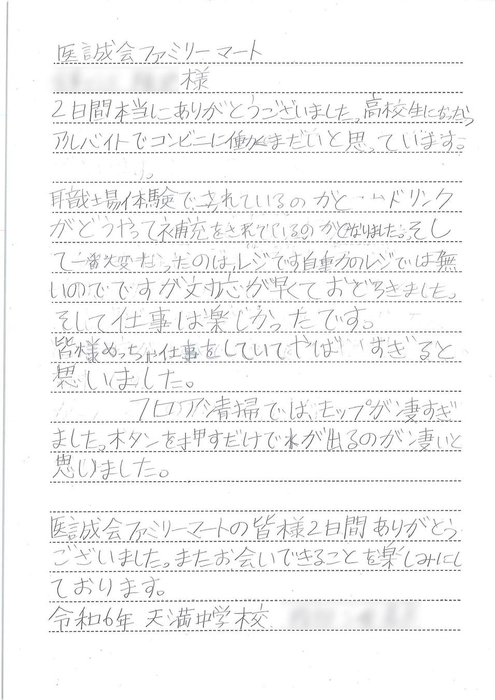 医誠会ファミリーマート
様
2日間本当にありがとうございました。高校生になったら
アルバイトでコンビニに働くまだいと思っています。
職場体験でされているのかと…ドリンク
がどうやって補充をされているのかとなりました。そし
て一番大変だったのは、レジです自動のレジでは無
いのでですが対応が早くておどろきました。
そして仕事は楽しかったです。
皆様めっちゃ仕事をしていてやばいすぎると
思いました。
フロア清掃では、モップが凄すぎ
ました。ボタンを押すだけで水が出るのが凄いと
思いました。
医誠会ファミリーマートの皆様2日間ありがとう
ございました。またお会いできることを楽しみにし
ております。
令和6年 天満中学校